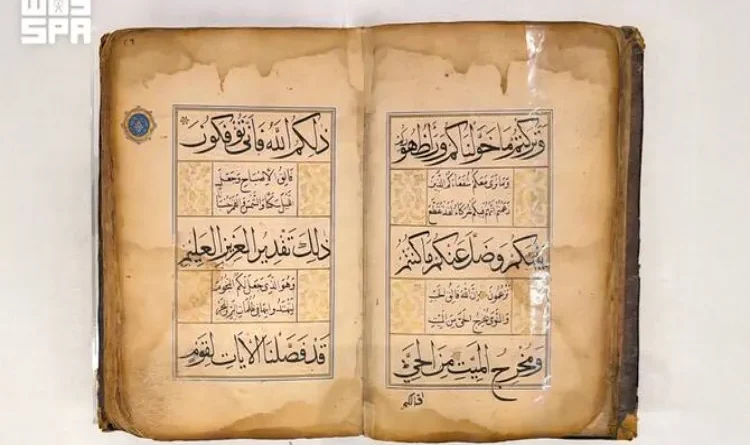 واس
SPA
وتركتم ما خولناكم وراء ظهوركم
وما نرى معكم شفعاءكم الذين
زعمتم انهم فيكم شركاء لقد تقطع
بينكم وضل عنكم ما كنتم
تزعمون ان الله فالق الحب
والنوى يخرج الحي من الميت
ومخرج الميت من الحي
ذلكم
ذلكم الله فانى تؤفكون
فالق الاصباح وجعل
الليل سكنا والشمس والقمر حسبانا
ذلك تقدير العزيز العليم
وهو الذي جعل لكم النجوم
لتهتدوا بها في ظلمات البر والبحر
قد فصلنا الآيات لقوم